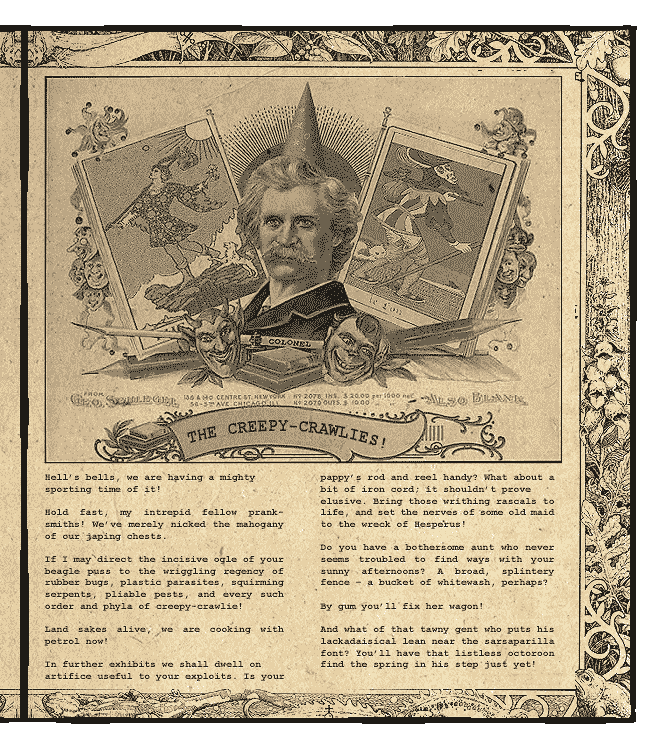 le Fou
COLONEL
FROM
GEO. SCHLEGEL
136 & 140 CENTRE ST. NEW YORK
No 2078, INS. $ 20.00 per 1000 net
ALSO BLANK
56-5TH AVE. CHICAGO ILL.
No 2079 OUTS. $ 10.00
THE CREEPY-CRAWLIES!
Hell's bells, we are having a mighty
sporting time of it!
Hold fast, my intrepid fellow prank-
smiths! We've merely nicked the mahogany
of our japing chests.
If I may direct the incisive ogle of your
beagle puss to the wriggling regency of
rubber bugs, plastic parasites, squirming
serpents, pliable pests, and every such
order and phyla of creepy-crawlie!
Land sakes alive, we are cooking with
petrol now!
In further exhibits we shall dwell on
artifice useful to your exploits. Is your
pappy's rod and reel handy? What about a
bit of iron cord; it shouldn't prove
elusive. Bring those writhing rascals to
life, and set the nerves of some old maid
to the wreck of Hesperus!
Do you have a bothersome aunt who never
seems troubled to find ways with your
sunny afternoons? A broad, splintery
fence – a bucket of whitewash, perhaps?
By gum you'll fix her wagon!
And what of that tawny gent who puts his
lackadaisical lean near the sarsaparilla
font? You'll have that listless octoroon
find the spring in his step just yet!